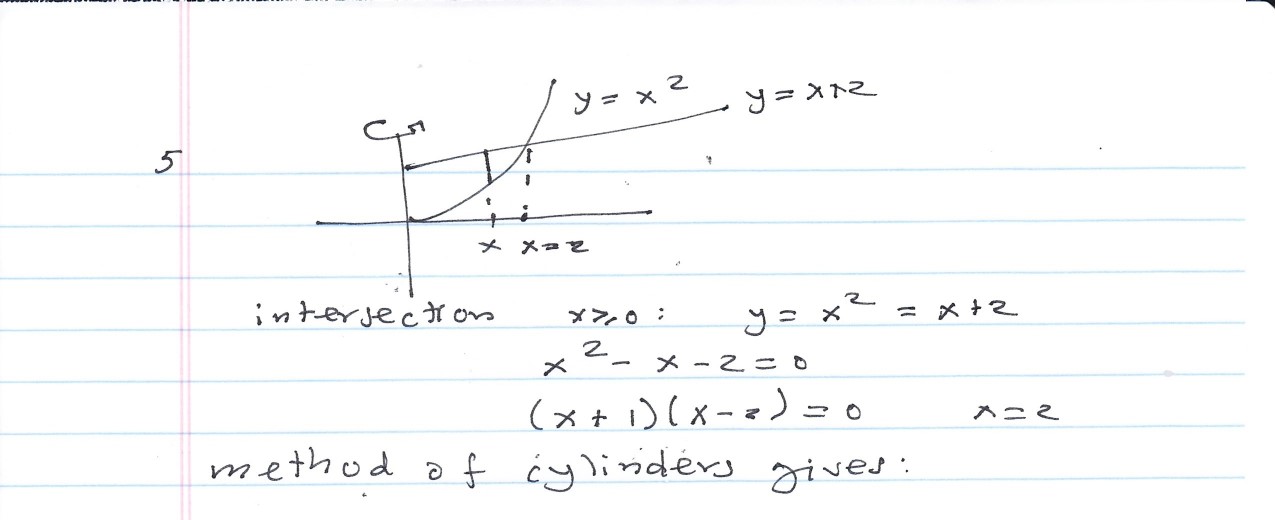 y = x² y = x+2
5
x x=2
intersection x≥0: y = x² = x+2
x² - x - 2 = 0
(x + 1)(x - 2) = 0 x = 2
method of cylinders gives: